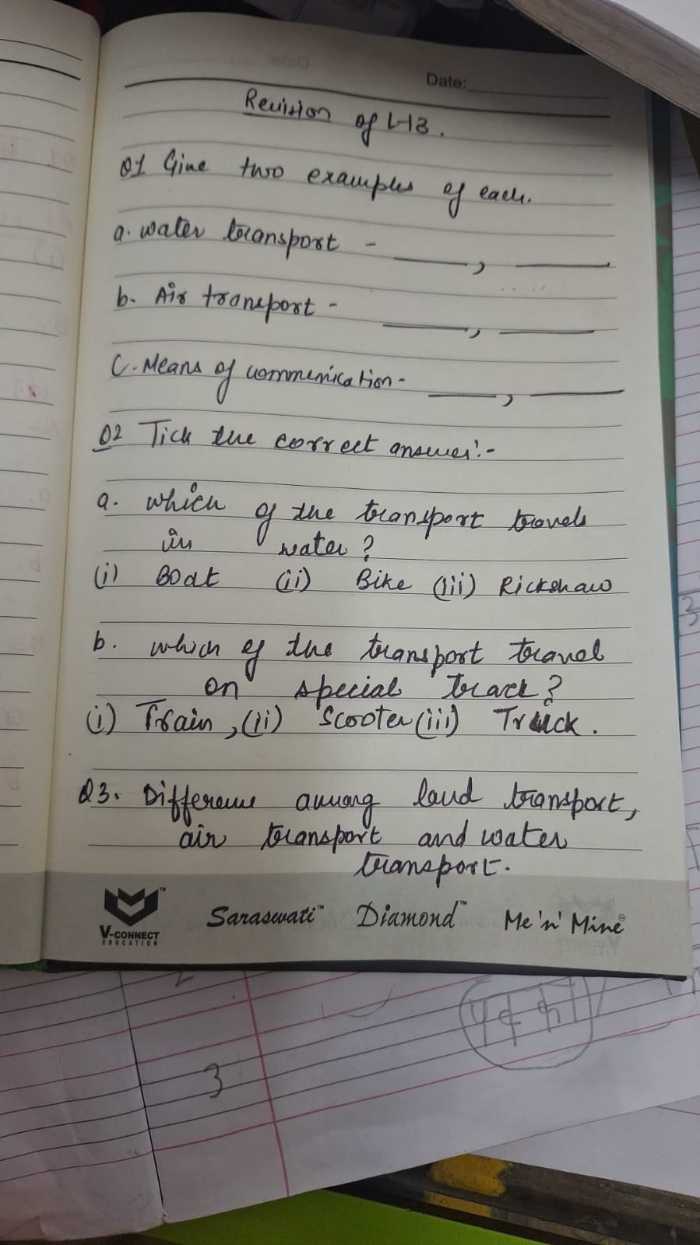 Date:
Revision of L-13.
Q1 Give two examples of each.
a. water transport - ____, ____
b. Air transport - ____, ____
C. Means of communication - ____, ____
Q2 Tick the correct answer:-
a. which of the transport travels
in water?
(i) Boat (ii) Bike (iii) Rickshaw
b. which of the transport travel
on special track?
(i) Train, (ii) Scooter (iii) Truck.
Q3. Difference among land transport,
air transport and water
transport.
V-CONNECT
EDUCATION
Saraswati™ Diamond™ Me 'n' Mine®
3